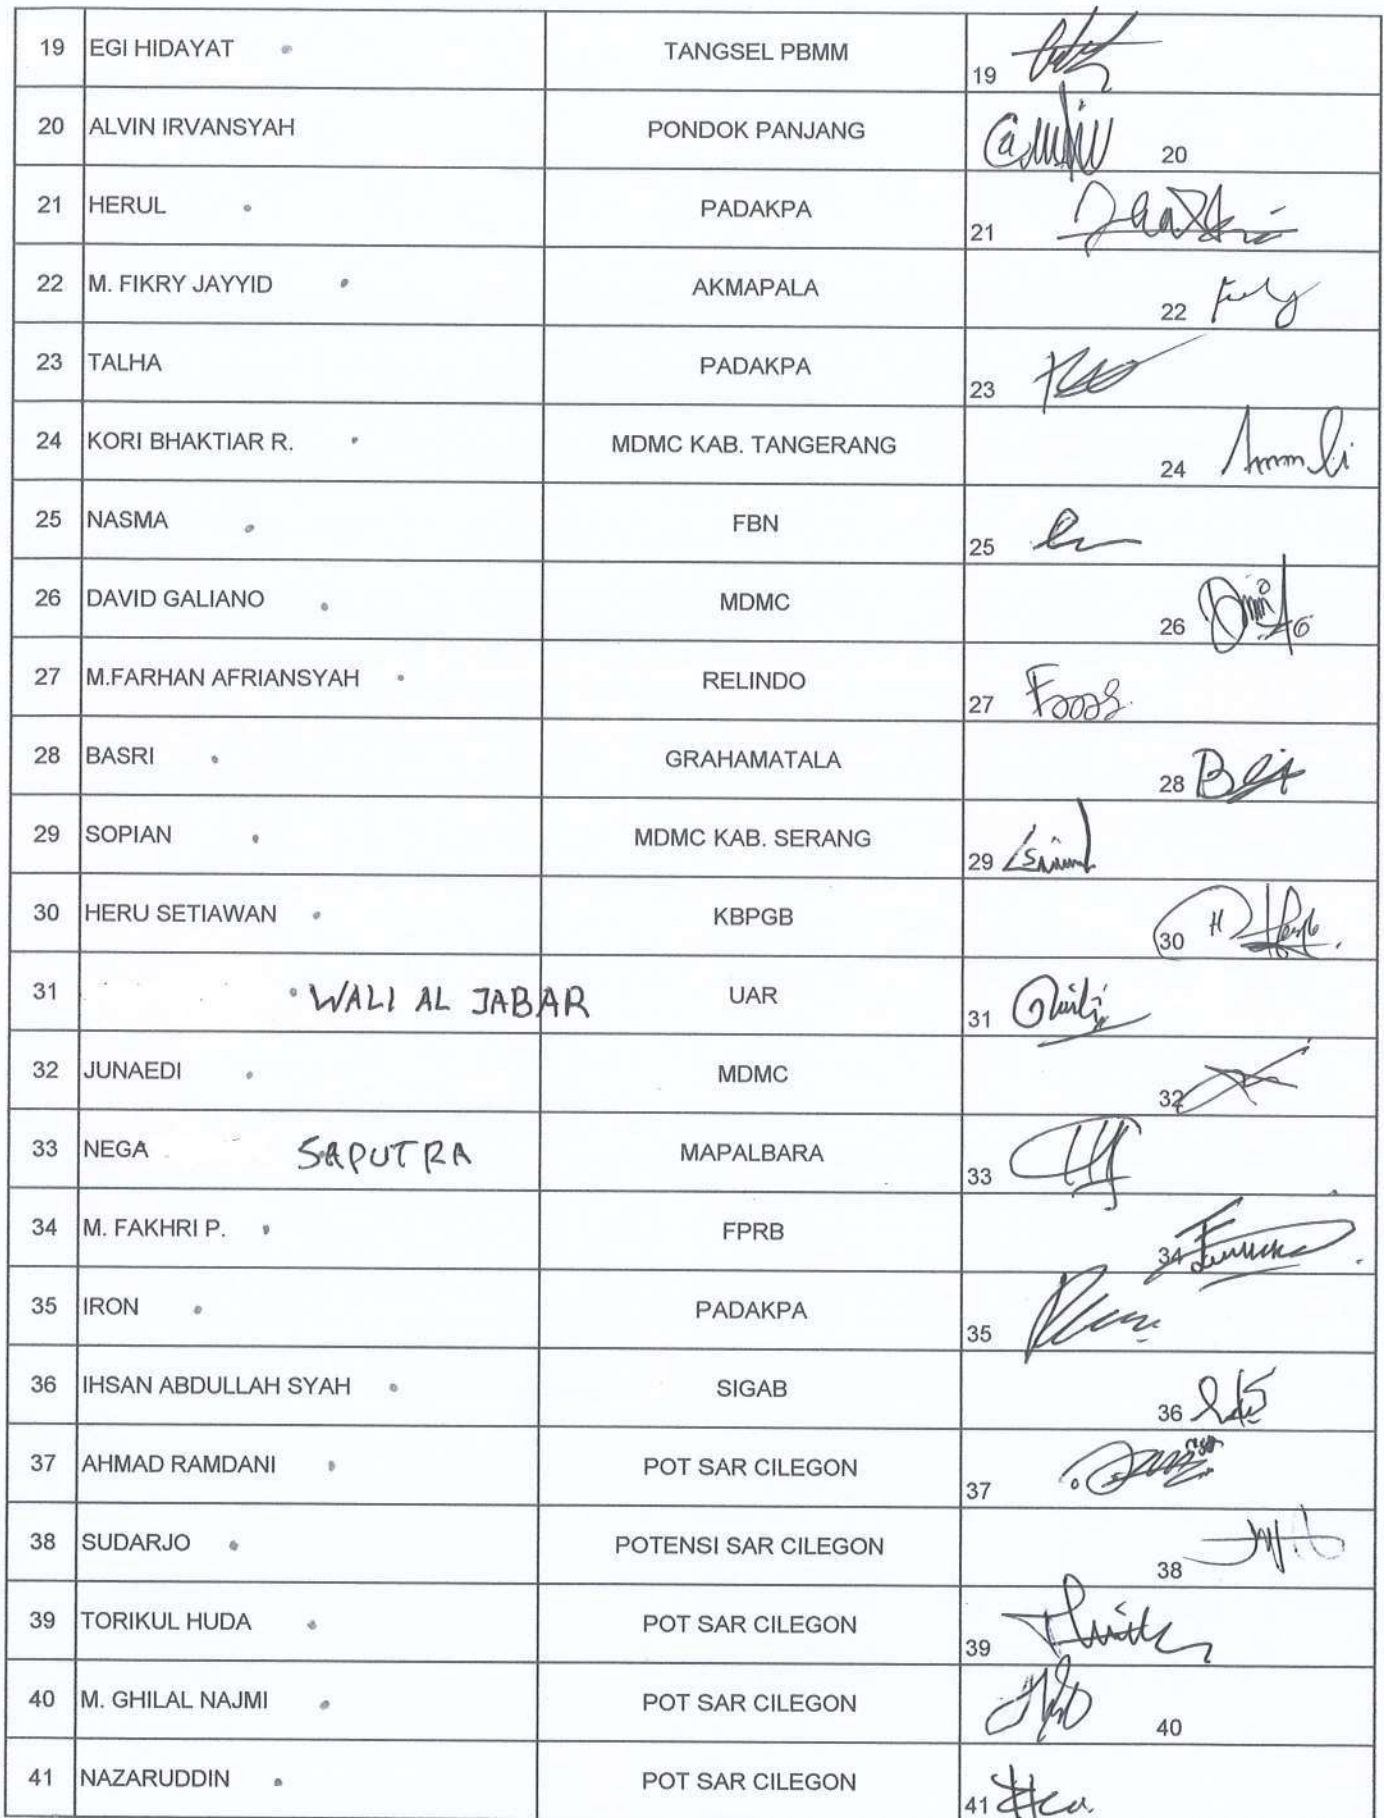 19 EGI HIDAYAT TANGSEL PBMM 19
20 ALVIN IRVANSYAH PONDOK PANJANG 20
21 HERUL PADAKPA 21
22 M. FIKRY JAYYID AKMAPALA 22
23 TALHA PADAKPA 23
24 KORI BHAKTIAR R. MDMC KAB. TANGERANG 24
25 NASMA FBN 25
26 DAVID GALIANO MDMC 26
27 M.FARHAN AFRIANSYAH RELINDO 27
28 BASRI GRAHAMATALA 28
29 SOPIAN MDMC KAB. SERANG 29
30 HERU SETIAWAN KBPGB 30
31 WALI AL JABAR UAR 31
32 JUNAEDI MDMC 32
33 NEGA SAPUTRA MAPALBARA 33
34 M. FAKHRI P. FPRB 34
35 IRON PADAKPA 35
36 IHSAN ABDULLAH SYAH SIGAB 36
37 AHMAD RAMDANI POT SAR CILEGON 37
38 SUDARJO POTENSI SAR CILEGON 38
39 TORIKUL HUDA POT SAR CILEGON 39
40 M. GHILAL NAJMI POT SAR CILEGON 40
41 NAZARUDDIN POT SAR CILEGON 41